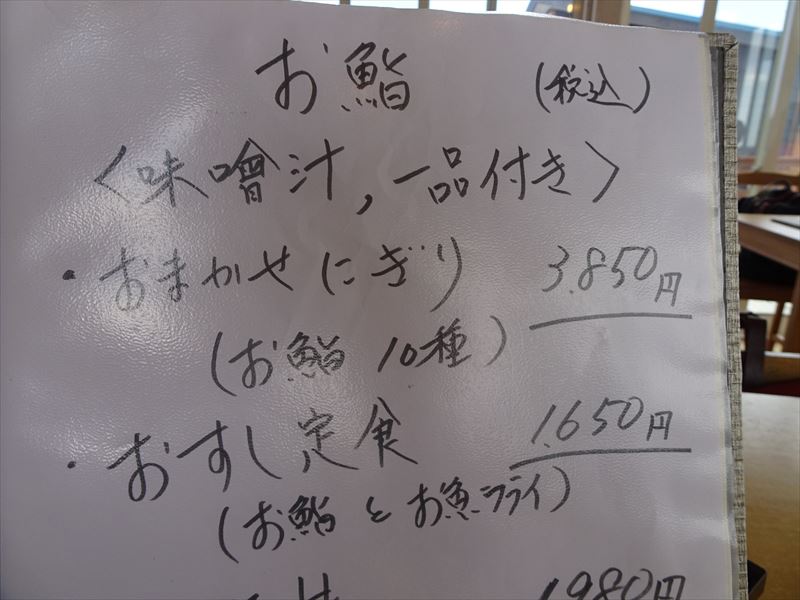 お鮨 (税込)
<味噌汁,一品付き>
・おまかせにぎり 3.850円
(お鮨 10種)
・おすし定食 1.650円
(お鮨とお魚フライ)
1980円